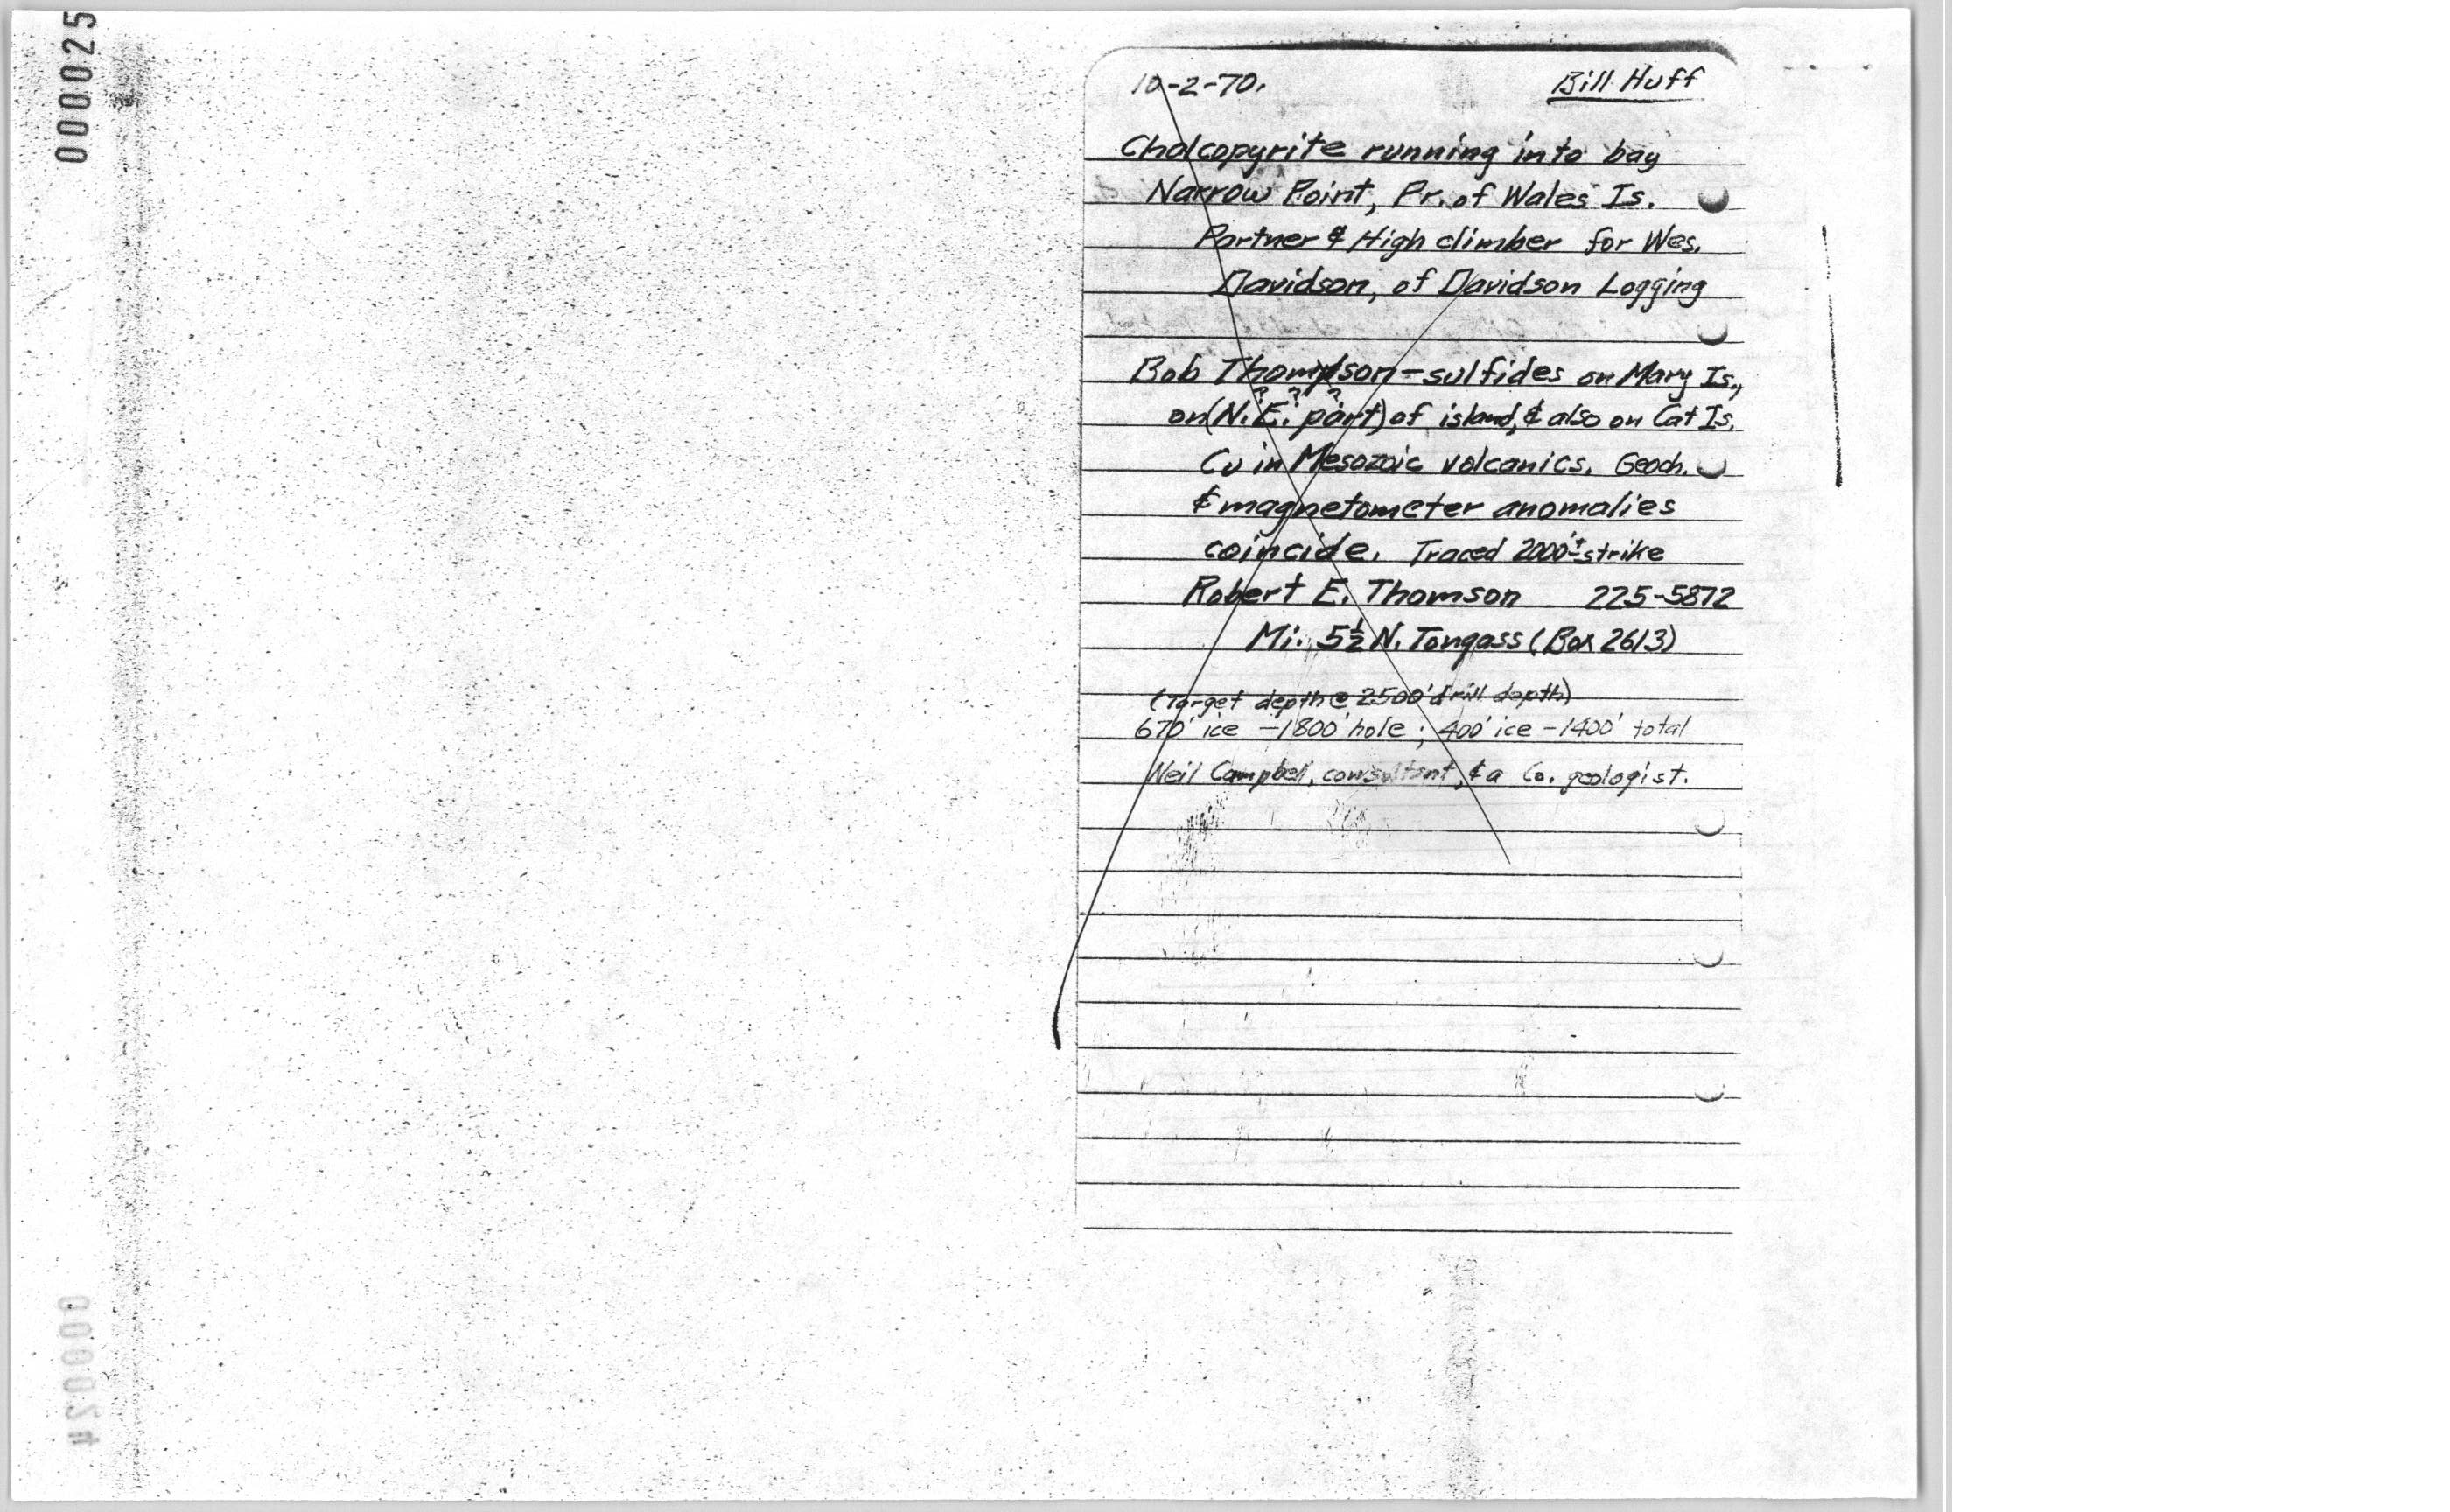 000025
10-2-70. Bill Huff
Chalcopyrite running into bay
Narrow Point, Pr. of Wales Is.
Partner & High climber for Wes.
Davidson, of Davidson Logging
Bob Thompson - sulfides on Mary Is.,
? ? ?
on (N.E. part) of island, & also on Cat Is.
Cu in Mesozoic volcanics. Geoch.
& magnetometer anomalies
coincide. Traced 2000'± strike
Robert E. Thomson 225-5872
Mi. 5½ N. Tongass (Box 2613)
(Target depth @ 2500' drill depth)
670' ice - 1800' hole ; 400' ice - 1400' total
Neil Campbell, consultant, & a Co. geologist.
000024